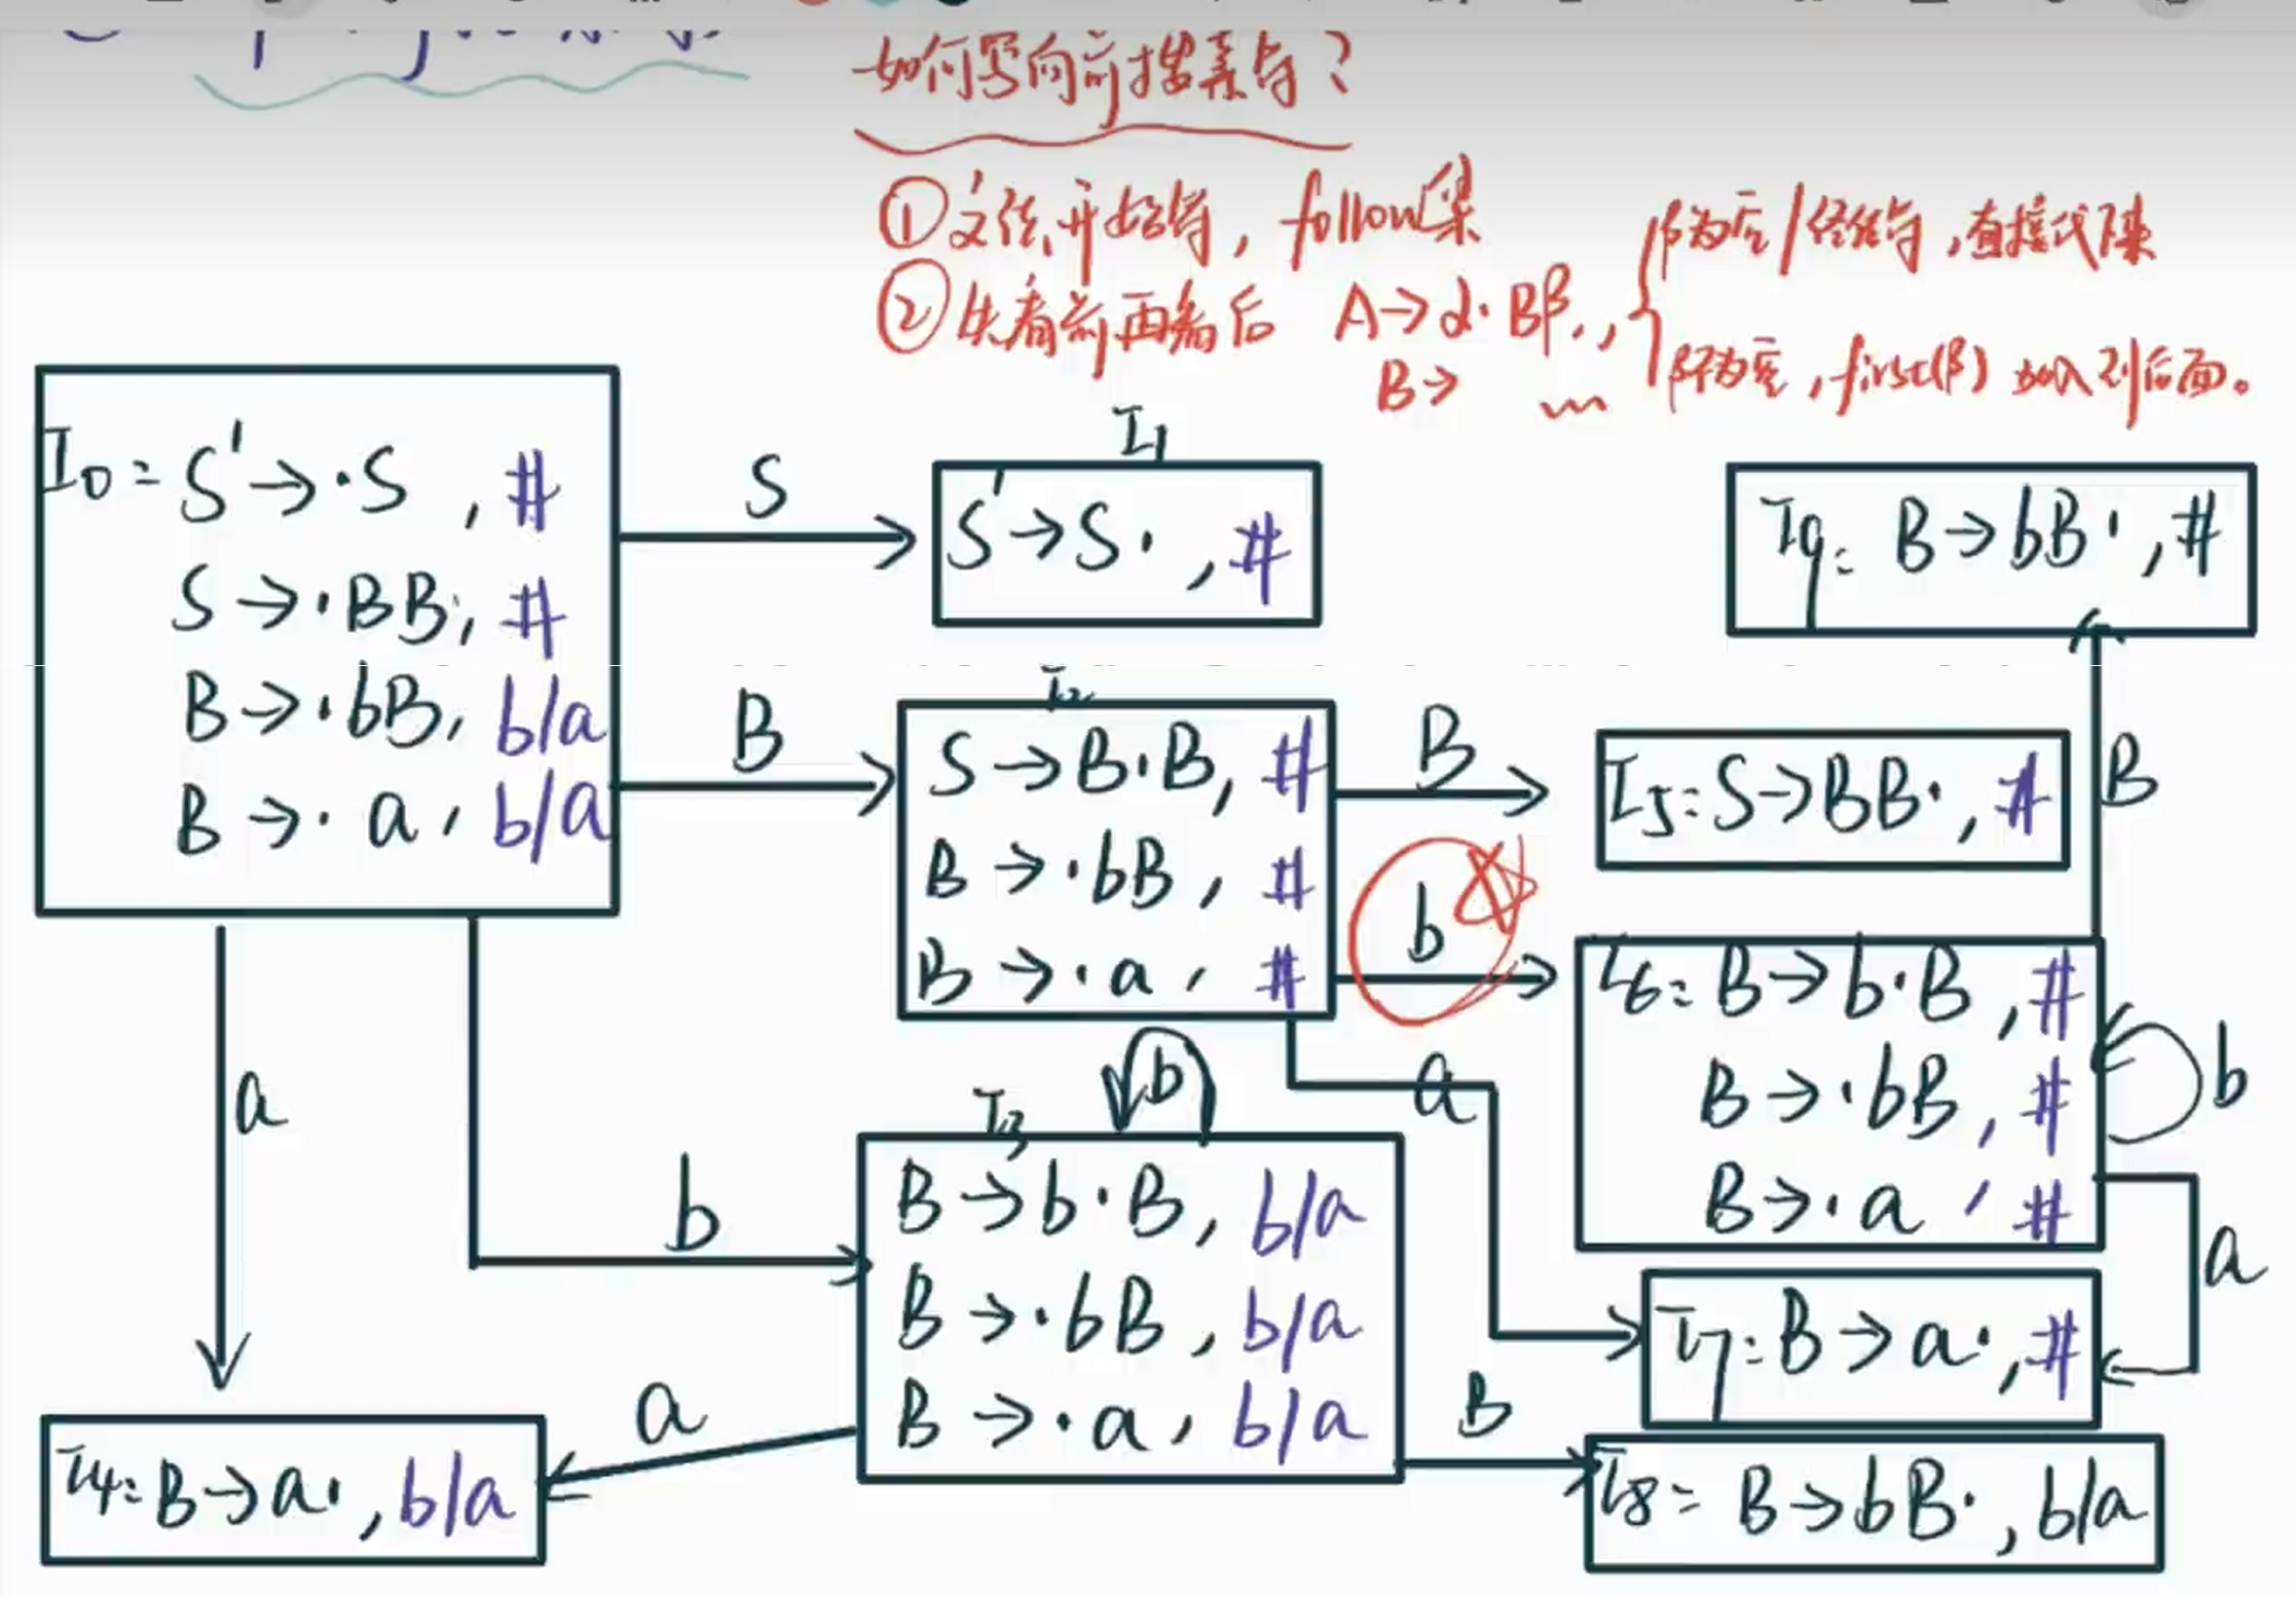 如何写向前搜索符?
①文法开始符, follow集
②先看前再看后 A→α·Bβ,,
B→
β为空/终结符,直接代下来
β不为空, first(β) 加入到后面。
I0= S'→·S , #
S→·BB, #
B→·bB, b/a
B→·a, b/a
S
I1
S'→S· , #
I9= B→bB· , #
B
I2
S→B·B, #
B→·bB, #
B→·a, #
B
I5=S→BB· , #
B
b
I6= B→b·B , #
B→·bB, #
B→·a , #
b
a
b
a
a
I3
B→b·B, b/a
B→·bB, b/a
B→·a, b/a
b
I7=B→a· , #
a
B
I4=B→a· , b/a
I8= B→bB· , b/a